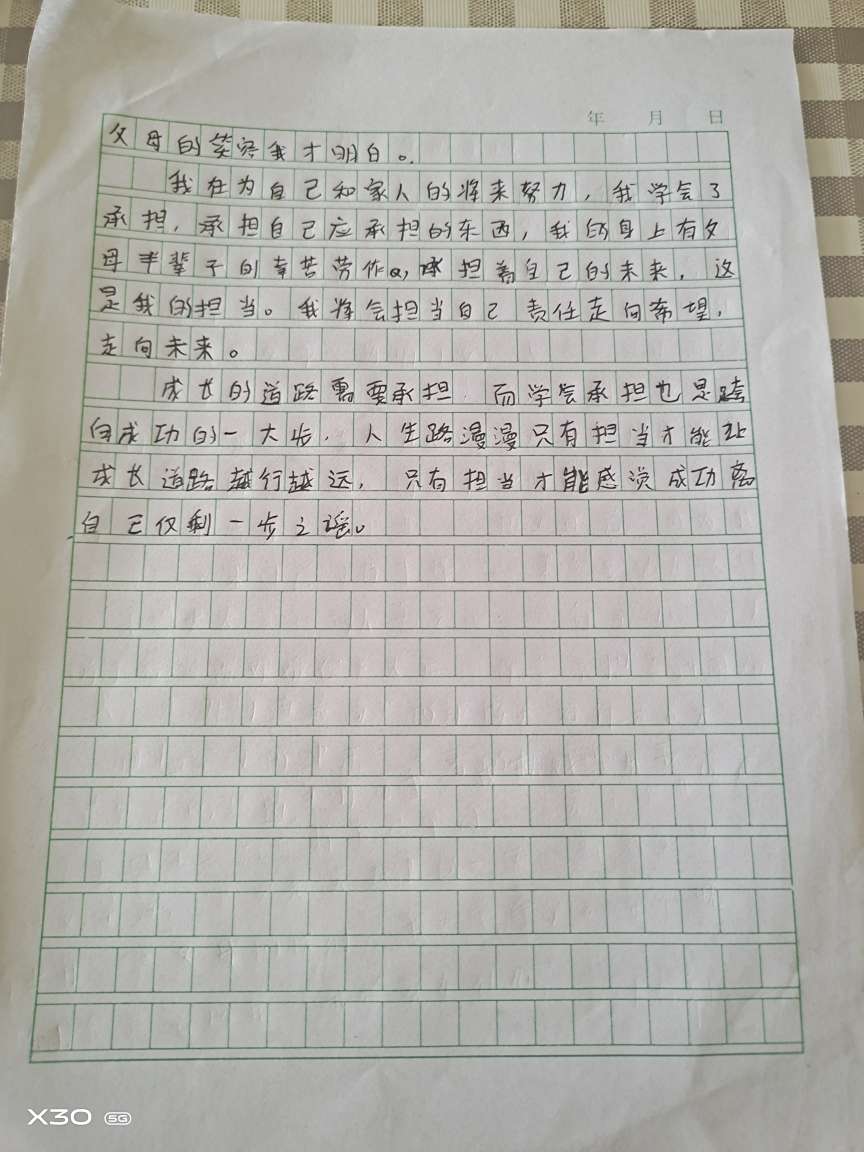 年 月 日
父母的笑容我才明白。
我在为自己和家人的将来努力，我学会了
承担，承担自己应承担的东西，我的身上有父
母半辈子的辛苦劳作，承担着自己的未来，这
是我的担当。我将会担当自己责任走向希望，
走向未来。
成长的道路需要承担，而学会承担也是跨
向成功的一大步，人生路漫漫只有担当才能让
成长道路越行越远，只有担当才能感觉成功离
自己仅剩一步之遥。
X30 5G